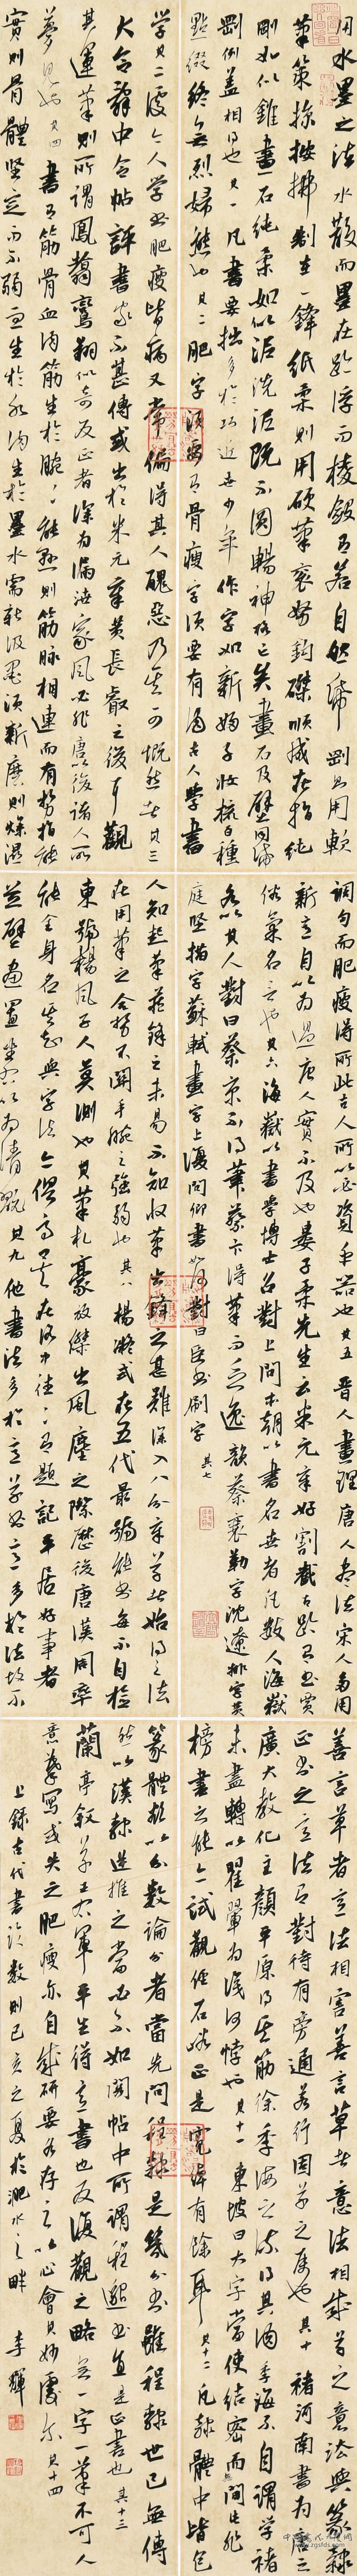 用水墨之法水散而墨在跡浮而棱斂有若自然紙剛則用軟
筆策掠按拂制在一鋒紙柔則用硬筆衮努鈎磔順成在指純
剛如以錐畫石純柔如以泥洗泥既不圓暢神格亡矣畫石及壁同紙
剛例蓋相得也其一凡書要拙多於巧近世少年作字如新婦子妝梳百種
點綴終無烈婦態也其二肥字須要有骨瘦字須要有肉古人學書
學其二處今人學書肥瘦皆病又常偏得其人醜惡乃真可慨然者其三
大令辭中令帖評書家不甚傳或出於米元章黃長睿之後耳觀
其運筆則所謂鳳翥鸞翔似奇反正者深為漏洩家風必非唐以後諸人所
夢見也其四書有筋骨血肉筋生於腕腕能懸則筋脈相連而有勢指能
實則骨體堅定而不弱血生於水肉生於墨水需新汲墨須新磨則燥濕
調勻而肥瘦得所此古人所以必資乎器也其五晉人盡理唐人盡法宋人多用
新意自以為過唐人實不及也婁子柔先生云米元章好割截古跡有書賈
俗氣名言也其六海嶽以書學博士召對上問本朝以書名世者凡數人海嶽
各以其人對曰蔡京不得筆蔡卞得筆而乏逸韻蔡襄勒字沈遼排字黃
庭堅描字蘇軾畫字上復問卿書如何對曰臣書刷字其七
人知起筆藏鋒之未易不知收筆出鋒之甚難深入八分章草者始得之法
在用筆之合勢不關手腕之強弱也其八楊凝式在五代最號能書每不自檢
束號楊風子人莫測也其筆札豪放傑出風塵之際歷後唐漢周卒
能全身名其知與字法亦俱高矣在洛中往往有題記平居好事者
并壁畫置坐右以為清玩其九他書法多於意草書意多於法故不
善言草者意法相害善言草者意法相成草之意法與篆隸
正書之意法有對待有旁通若行固草之屬也其十褚河南書為唐之
廣大教化主顏平原得其筋徐季海之流得其肉季海不自謂學褚
未盡轉以翟翬為淺何悖也其十一東坡曰大字當使結密而無間此非
榜書之能今試觀經石峪正是寬綽有餘耳其十二凡隸體中皆包
篆體欲以分數論分者當先問程隸是幾分書雖程隸世已無傳
然以漢隸逆推之當必不如閣帖中所謂程邈書直是正書也其十三
蘭亭敘草王右軍平生得意書也反復觀之略無一字一筆不可人
意摹寫或失之肥瘦亦自成妍要各存之以心會其妙處爾其十四
上錄古代書論數則己亥之夏於淝水之畔李輝